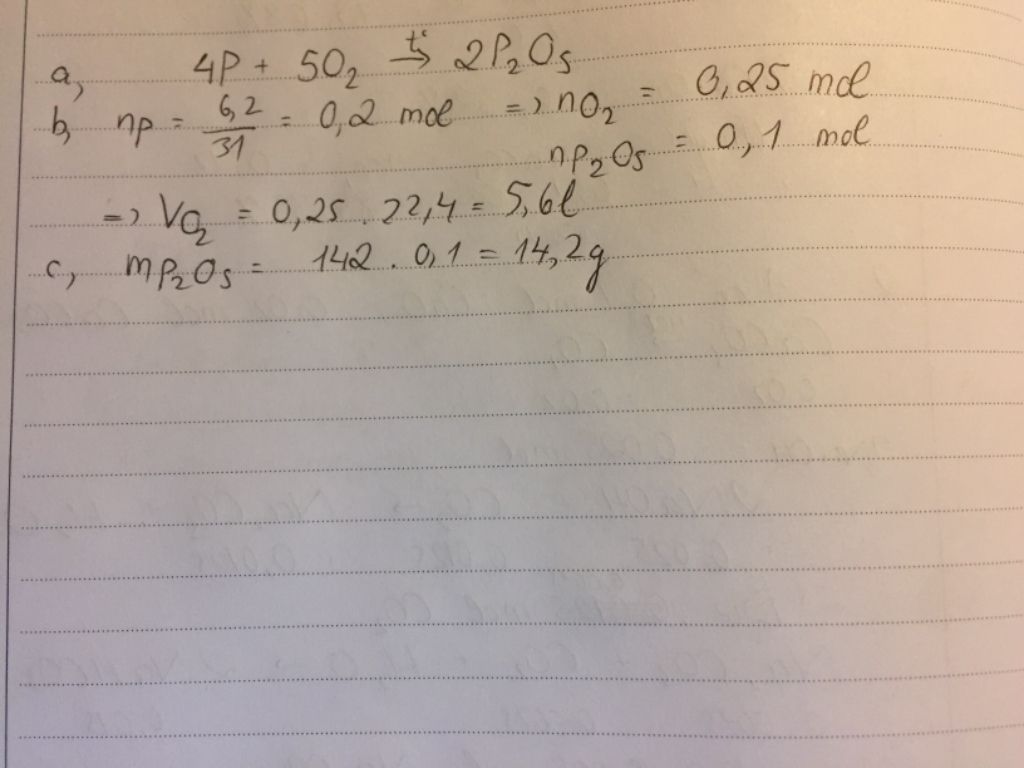 a, 4P + 5O₂ →(t°) 2P₂O₅
b, np = 6,2/31 = 0,2 mol => nO₂ = 0,25 mol
nP₂O₅ = 0,1 mol
=> VO₂ = 0,25 . 22,4 = 5,6l
c, mP₂O₅ = 142 . 0,1 = 14,2g